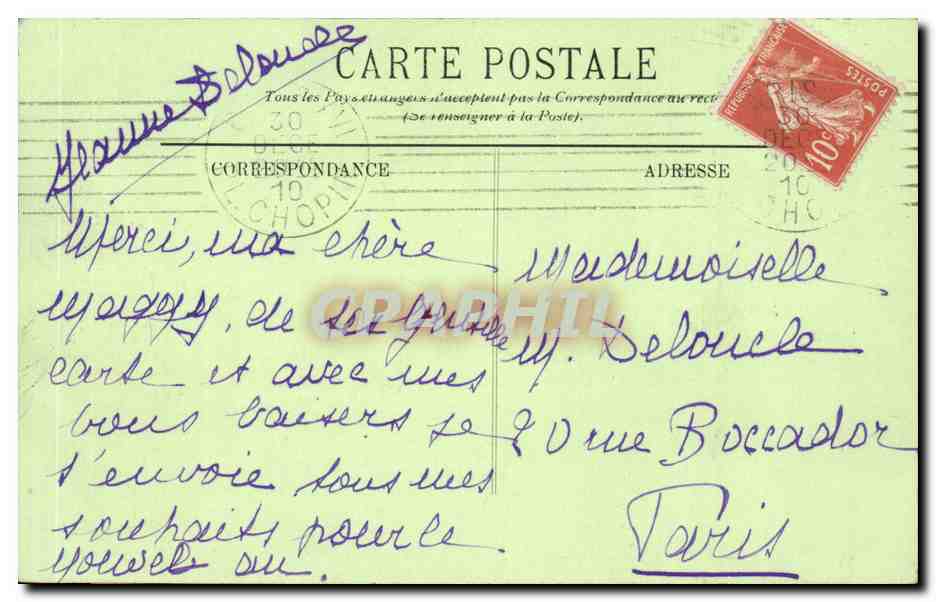 Jeanne Deloncle
CARTE POSTALE
Tous les Pays étrangers n'acceptent pas la Correspondance au recto
(Se renseigner à la Poste).
CORRESPONDANCE
ADRESSE
30
DECE
10
PL. CHOPIN
REPUBLIQUE FRANÇAISE
POSTES
10c
30
DEC
20
10
CHO
Merci, ma chère
Maggy, de ta gentille
carte et avec mes
bons baisers je
t'envoie tous mes
souhaits pour le
nouvel an.
Mademoiselle
M. Deloncle
20 rue Boccador
Paris
GRAPHIL